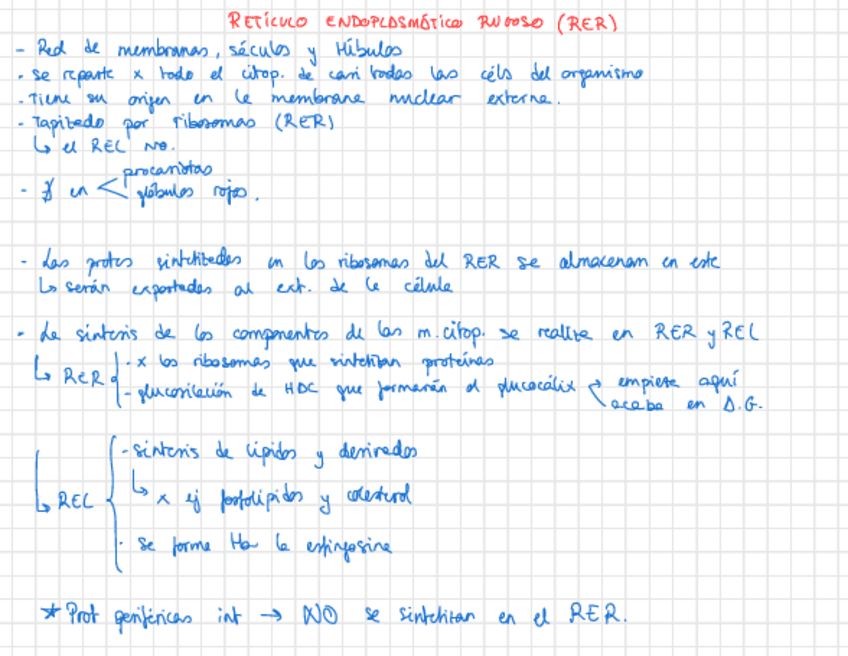 RETÍCULO ENDOPLASMÁTICO RUGOSO (RER)
- Red de membranas, sáculos y túbulos
- se reparte x todo el citop. de casi todas las céls del organismo
- Tiene su origen en la membrana nuclear externa.
- Tapizado por ribosomas (RER)
↳ el REL NO.
- ∄ en < procariotas
glóbulos rojos.
- Las protes sintetizadas en los ribosomas del RER se almacenan en este
↳ serán exportadas al ext. de la célula
- La síntesis de los componentes de las m.citop. se realiza en RER y REL
↳ RER { - x los ribosomas que sintetizan proteínas
- glucosilación de HDC que formarán el glucocálix < empieza aquí
acaba en A.G.
↳ REL { - síntesis de lípidos y derivados
↳ x ej fosfolípidos y colesterol
- se forma tb la esfingosina
* Prot periféricas int → NO se sintetizan en el RER.